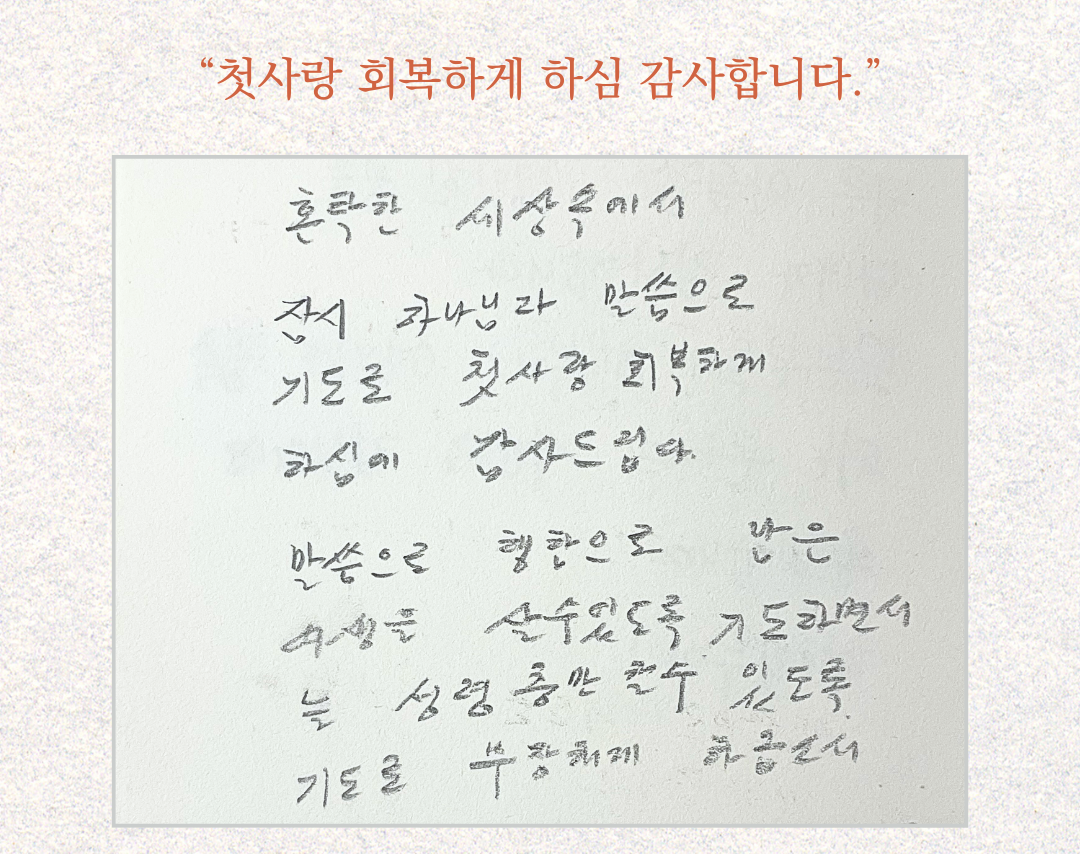 “첫사랑 회복하게 하심 감사합니다.”
혼탁한 세상속에서
잠시 하나님과 말씀으로
기도로 첫사랑 회복하게
하심에 감사드립다.
말씀으로 행함으로 남은
생을 살수있도록 기도하면서
늘 성령 충만 할수 있도록
기도로 부장하게 하옵소서